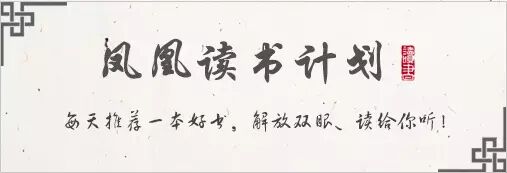 凤凰读书计划
读书
每天推荐一本好书,解放双眼、读给你听!